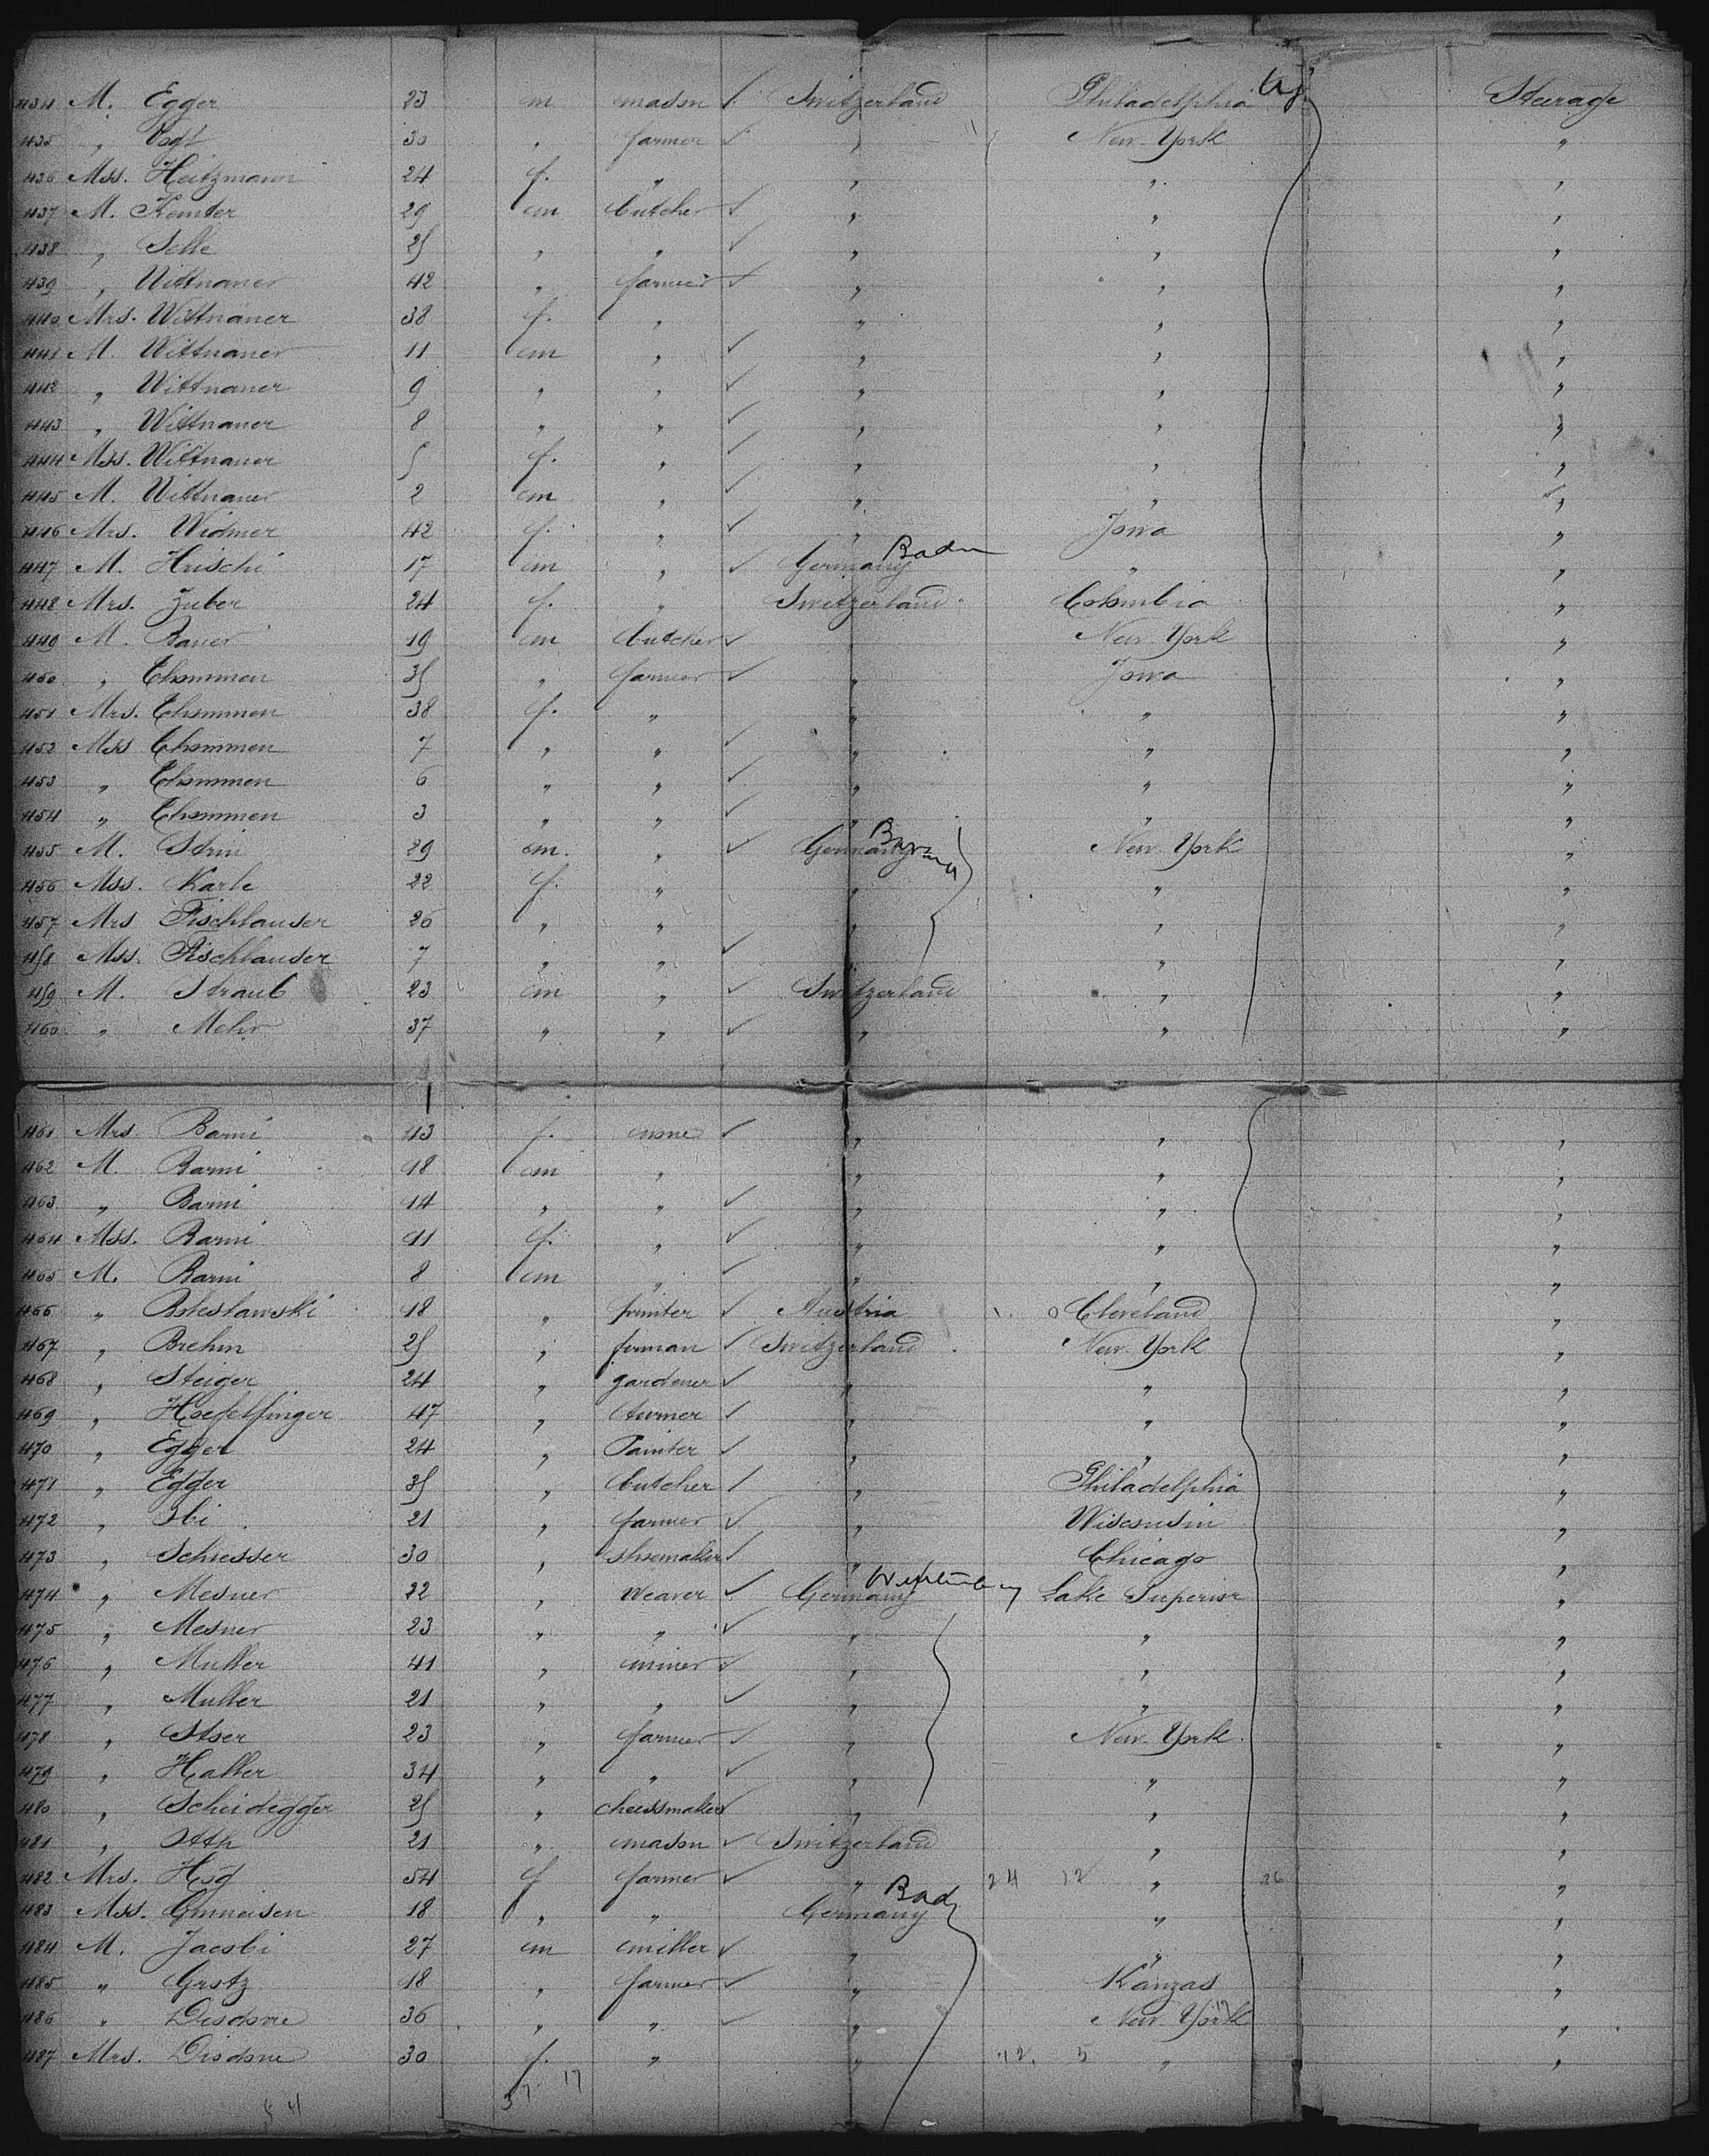 434 M. Egger 23 m mason ✓ Switzerland Philadelphia Steerage
435 " Vogt 30 " farmer ✓ " New York "
436 Mss. Heitzmann 24 f. " " " "
437 M. Kemter 29 m butcher ✓ " " "
438 " Selle 25 " " ✓ " " "
439 " Wittnauer 42 " farmer ✓ " " "
440 Mrs. Wittnauer 38 f. " " " "
441 M. Wittnauer 11 m " ✓ " " "
442 " Wittnauer 9 " " ✓ " " "
443 " Wittnauer 8 " " ✓ " " "
444 Mss. Wittnauer 5 f. " ✓ " " "
445 M. Wittnauer 2 m " ✓ " " "
446 Mrs. Widmer 42 f. " ✓ " Jowa "
447 M. Hrischi 17 m " ✓ Germany Baden " "
448 Mrs. Zuber 24 f. " Switzerland Columbia "
449 M. Bauer 19 m butcher ✓ " New York "
450 " Thommen 35 " farmer ✓ " Jowa "
451 Mrs. Thommen 38 f. " " " "
452 Mss Thommen 7 " " ✓ " " "
453 " Thommen 6 " " ✓ " " "
454 " Thommen 3 " " ✓ " " "
455 M. 29 m. " ✓ Germany Bavaria New York "
456 Mss. Karle 22 f. " " " "
457 Mrs Fischhauser 26 " " " " "
458 Mss. Fischhauser 7 " " ✓ " " "
459 M. Straub 23 m " ✓ Switzerland " "
460 " Mehr 37 " " ✓ " " "
461 Mrs. Barni 43 f. none ✓ " " "
462 M. Barni 18 m " " " "
463 " Barni 14 " " ✓ " " "
464 Mss. Barni 11 f. " ✓ " " "
465 M. Barni 8 m " ✓ " " "
466 " Boleslawski 18 " printer ✓ Austria Cleveland "
467 " Brehm 25 " ✓ Switzerland New York "
468 " Steiger 24 " gardener ✓ " " "
469 " Hoefelfinger 47 " turner ✓ " " "
470 " Egger 24 " Painter ✓ " " "
471 " Egger 35 " butcher ✓ " Philadelphia "
472 " 21 " farmer ✓ " Wisconsin "
473 " Schiesser 30 " shoemaker ✓ " Chicago "
474 " Mesner 22 " weaver ✓ Germany Lake Superior "
475 " Mesner 23 " " ✓ " " "
476 " Muller 41 " miner ✓ " " "
477 " Muller 21 " " ✓ " " "
478 " 23 " farmer ✓ " New York "
479 " Haller 34 " " ✓ " " "
480 " Scheidegger 25 " cheesmaker ✓ " " "
481 " 21 " mason ✓ Switzerland " "
482 Mrs. Hog 54 f farmer ✓ " 24 12 " 36 "
483 Mss. Gmneisen 18 " " Germany Bad " "
484 M. Jacobi 27 m miller ✓ " " "
485 " Grotz 18 " farmer ✓ " Kanzas "
486 " Disdorne 36 " " ✓ " New York "
487 Mrs. Disdorne 30 f. " " 12. 5 " "
37 17